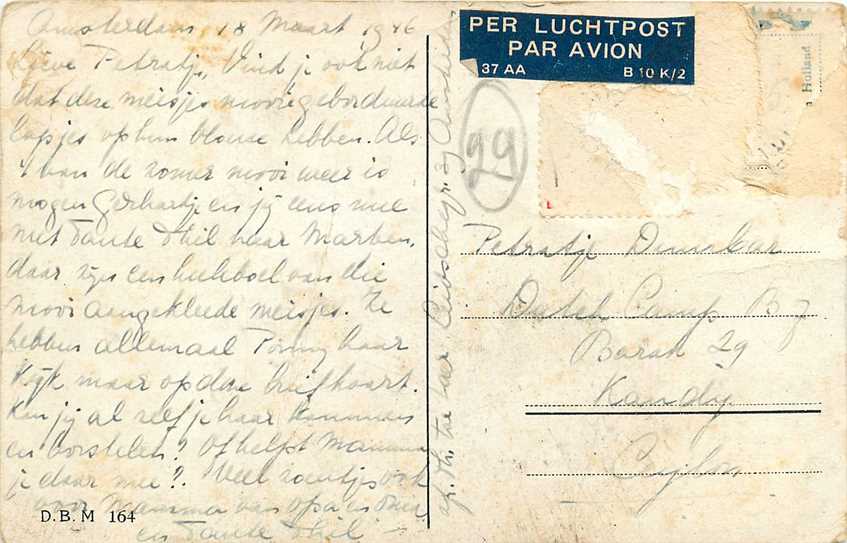 Amsterdam, 18 Maart 1946
Lieve Petratje, Vind je ook niet
dat deze meisjes mooie geborduurde
lapjes op hun blouse hebben. Als
't van de zomer mooi weer is
mogen Gerhartje en jij eens mee
met Tante Thil naar Marken,
daar zijn een heleboel van die
mooi aangekleede meisjes. Ze
hebben allemaal Ponny haar
Kijk maar op deze briefkaart.
Kan jij al zelf je haar kammen
en borstelen? Of helpt Mamma
je daar mee? Veel zoentjes ook
voor Mamma van opa en oma
en Tante Thil
PER LUCHTPOST
PAR AVION
37 AA B 10 K/2
Holland
29
Petratje
Dutch Camp B 7
Barak 29
Kandy
Ceylon
D.B.M 164